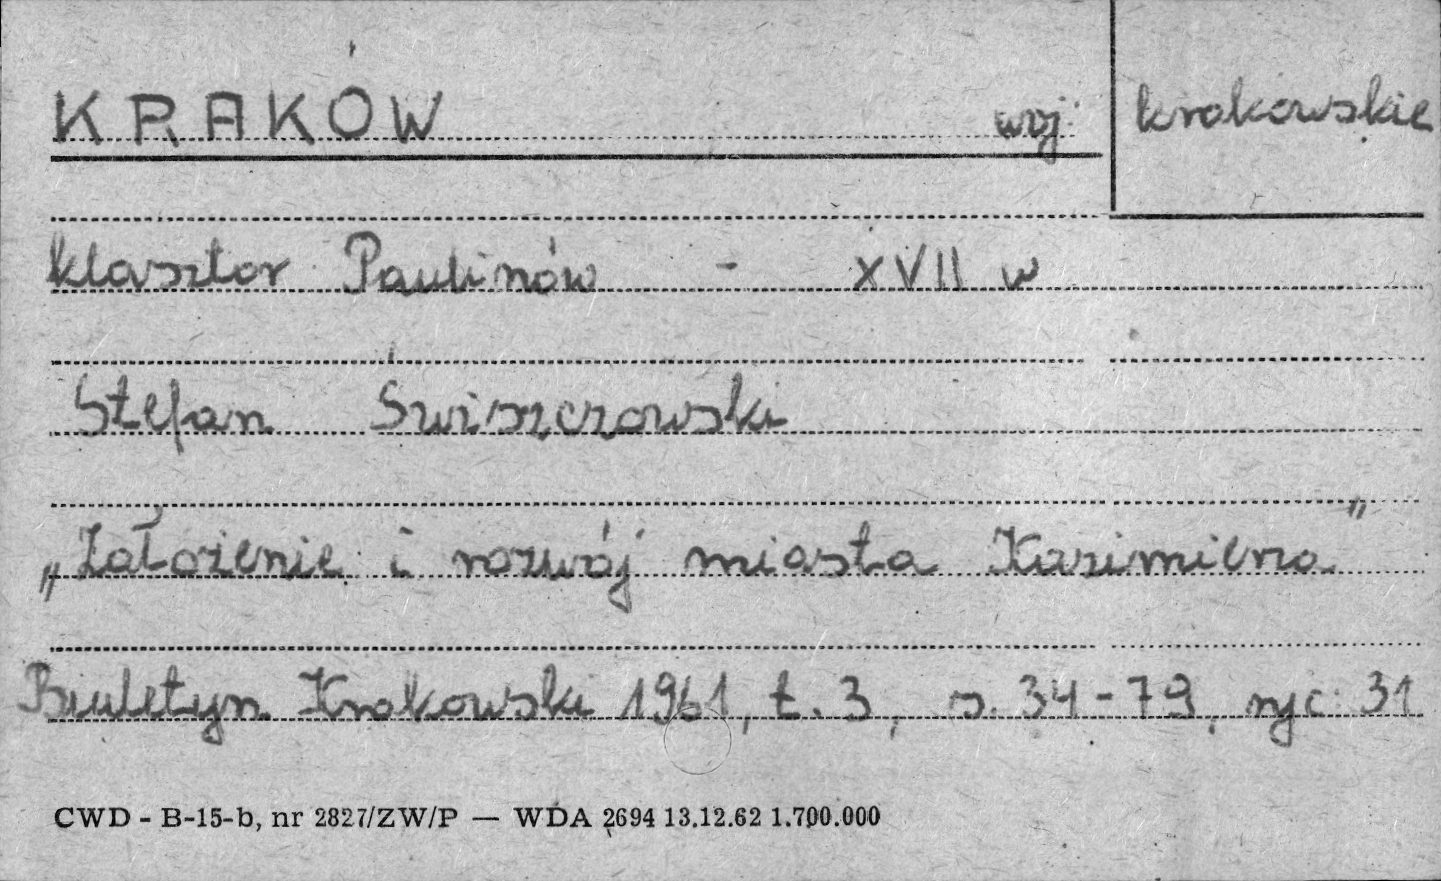 KRAKÓW woj. krakowskie
klasztor Paulinów - XVII w
Stefan Świszczowski
„Założenie i rozwój miasta Kazimierza"
Biuletyn Krakowski 1961, t. 3, s. 34-79, ryc. 31
CWD - B-15-b, nr 2827/ZW/P — WDA 2694 13.12.62 1.700.000